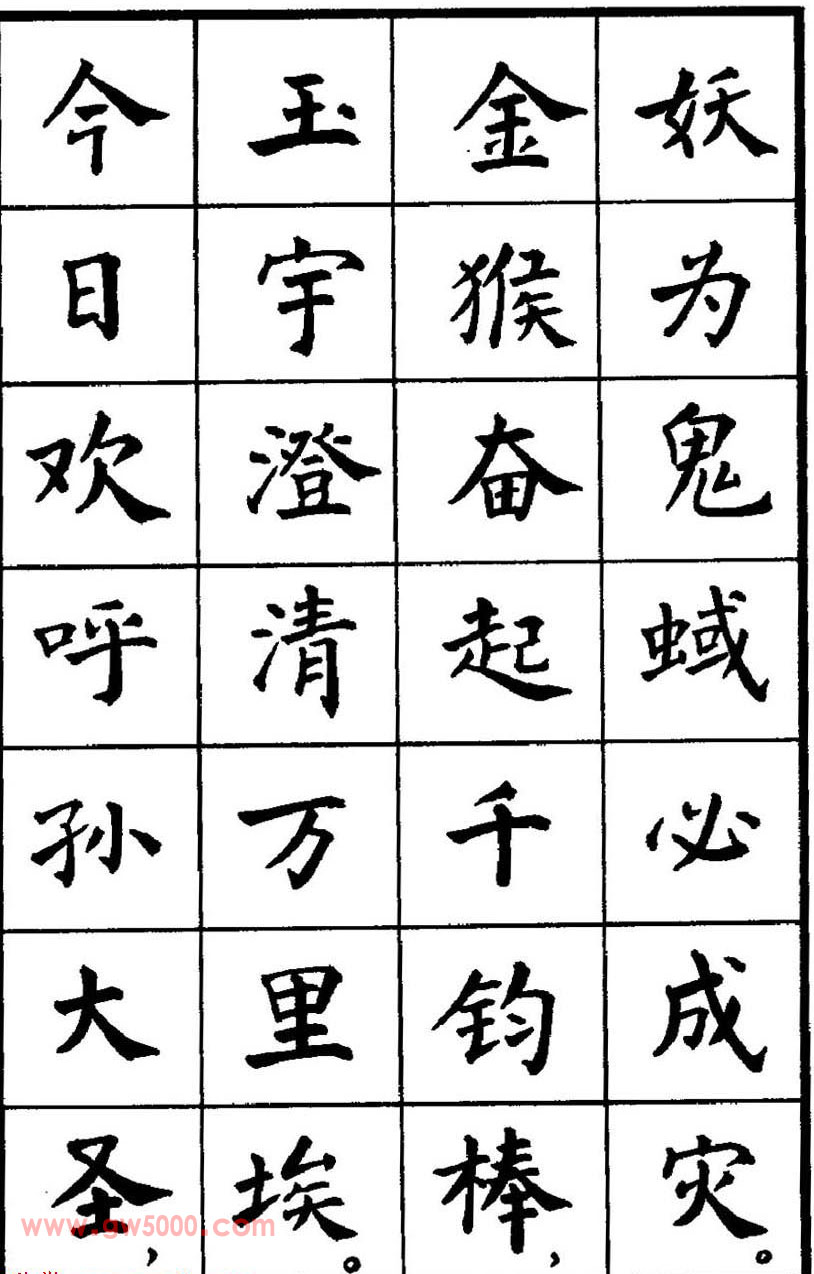 妖为鬼蜮必成灾。
金猴奋起千钧棒，
玉宇澄清万里埃。
今日欢呼孙大圣，
www.gw5000.com